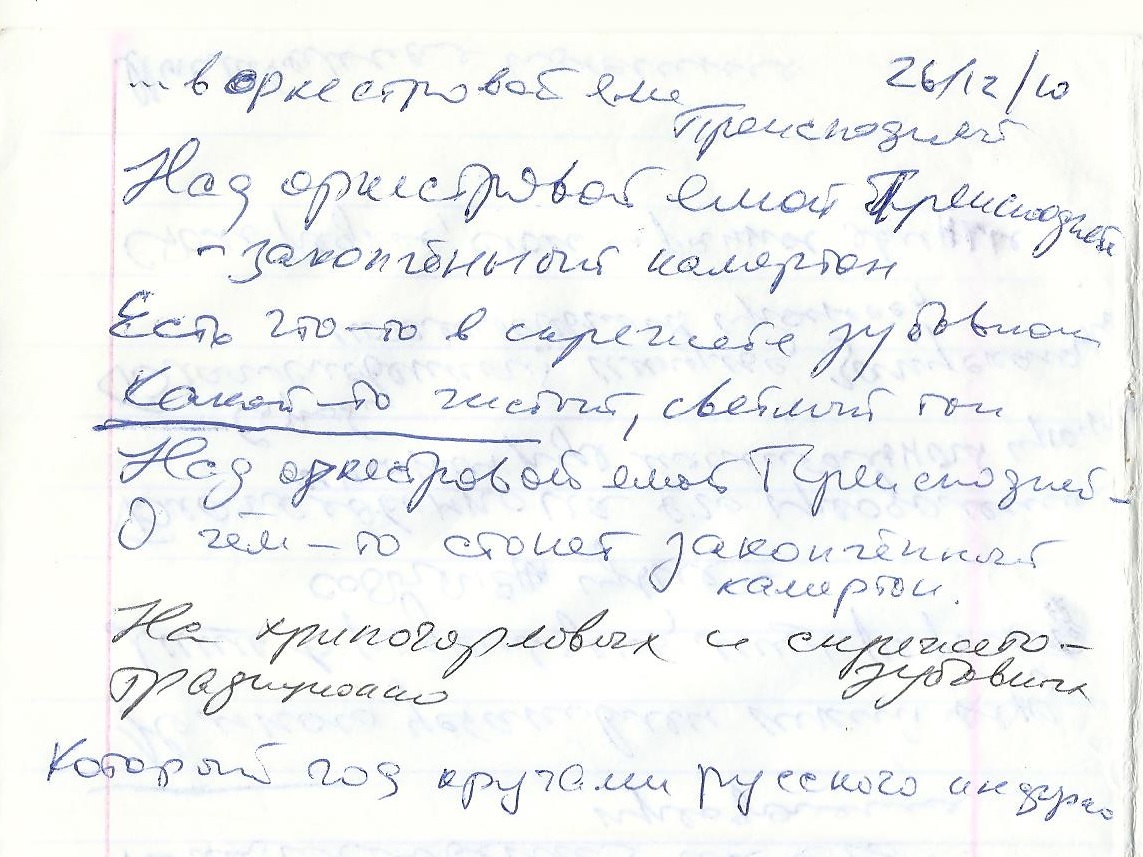 ... в оркестровой яме 26/12/10
Преисподней
Над оркестровой ямой Преисподней
- закопчённый камертон
Есть что-то в скрежете зубовном
Какой-то чистый, светлый тон
Над оркестровой ямой Преисподней -
О чём-то стонет закопчённый
камертон.
На хрипогорловых и скрежето-
зубовных
традиционно
Который год кручами русского